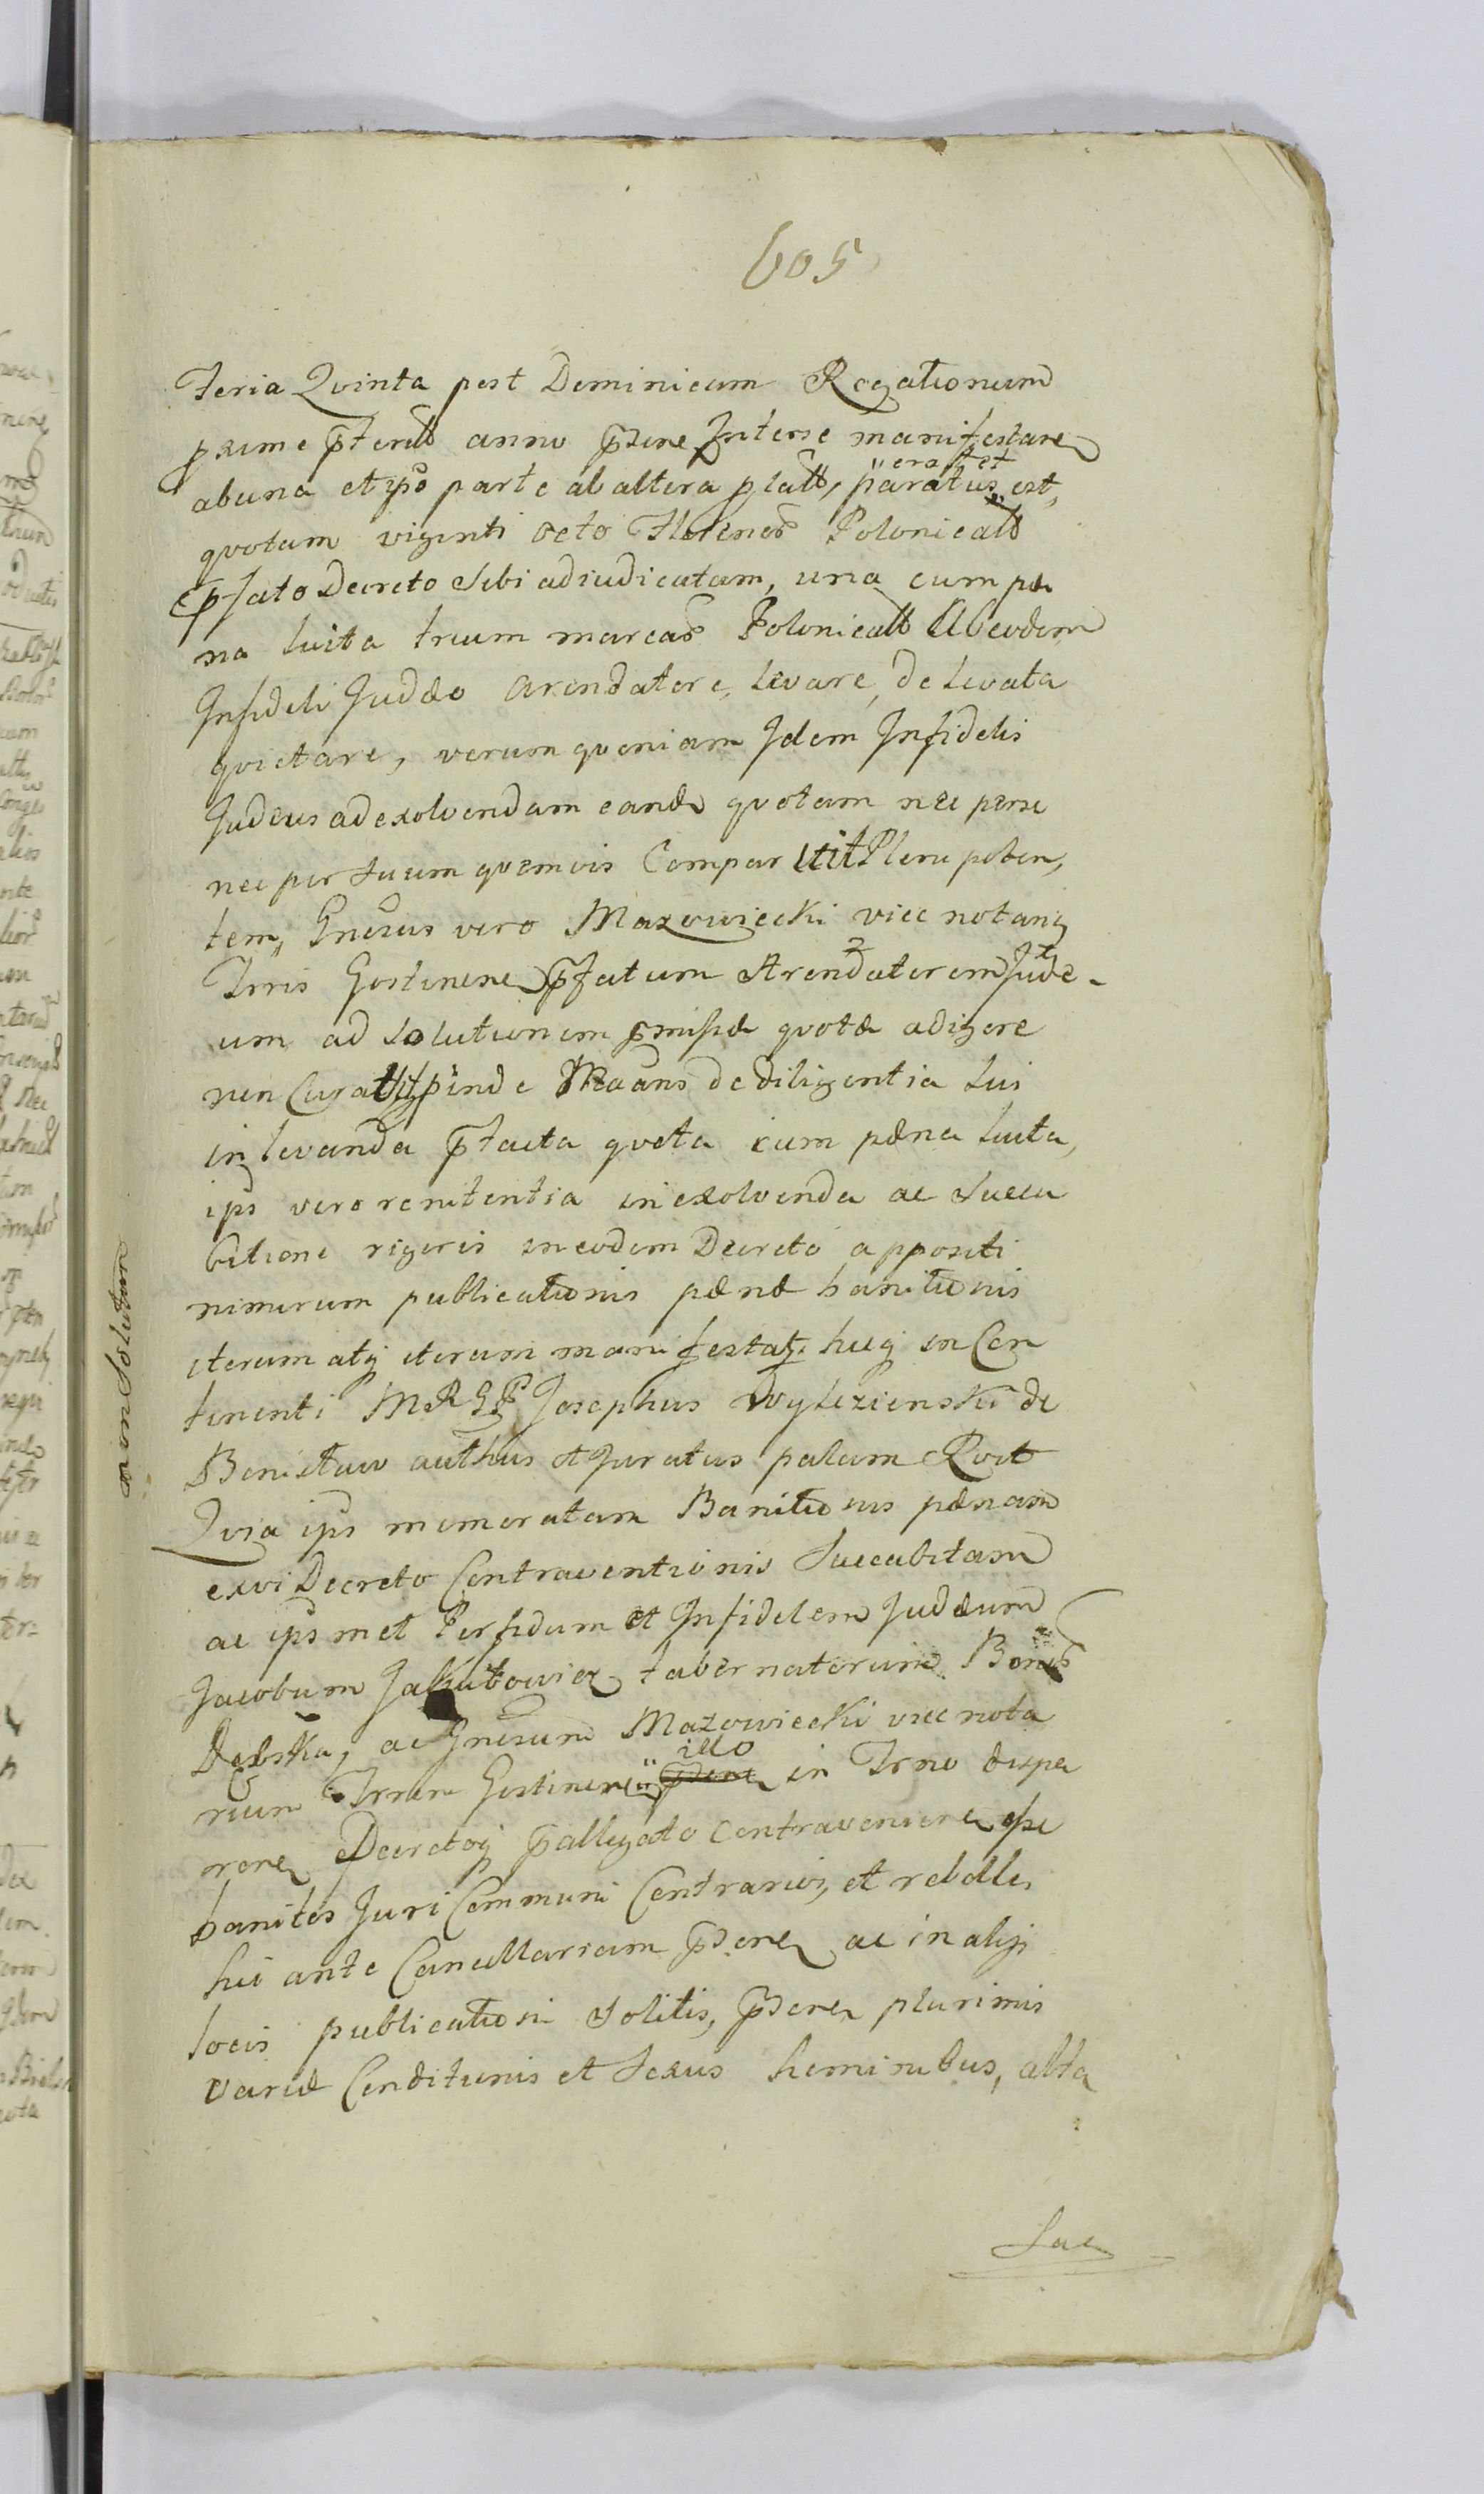 605
Feria Quinta post Dominicam Rogationum
proxime pterita anno pnte Interse manifestare
abuna et ipso parte ab altera platt, paratus erat et
quotam viginti octo Florenos Polonicales
e pfato Decreto Sibi adiudicatam, una cum pæ
na luita trium marcas Polonicales Ab eodem
Infideli Judæo Arendatore, levare, de levata
quietare, verum quoniam Idem Infidelis
Judæus ad exolvendam eande quotam nec perse
nec per suum quemvis Comparuit Plenipoten,
tem, Gnosus vero Mazowiecki vice notarig
Trris Gostinen pfatum Arendatorem Jude-
um ad solutionem pmissæ quotæ adigere
non Curavit pinde Mans de diligentia sui
in levanda ptacta quota cum pæna luita,
ips vero renitentia in exolvenda ac Succu
bitione rigoris in eodem Decreto appositi
nimirum publicationis pænæ banitionis
iterum atq iterum manifestat. hucq in Con
tinenti MRGP Josephus Wylezienski de
Bonistaw authus et Juratus palam Rvit
Quia ips memoratam Banitionis pænam
ex vi Decreto Contraventionis Succubitam
ac ipsmet Perfidum et Infidelem Judæum
Jacobum Jakubowicz tabernatorum Bonos
Debska, ac Gnosum Mazowiecki vice nota
rium Trrem Gostinen illo in Trno
Decretoq pallegato contravenire esse
banitos Juri Communi Contrarios, et rebelles
hic ante Cancellariam pnte ac in alijs
locis publicationi Solitis, pnte plurimis
variæ Conditionis et Sexus hominibus, alta
Sac
non Solutum